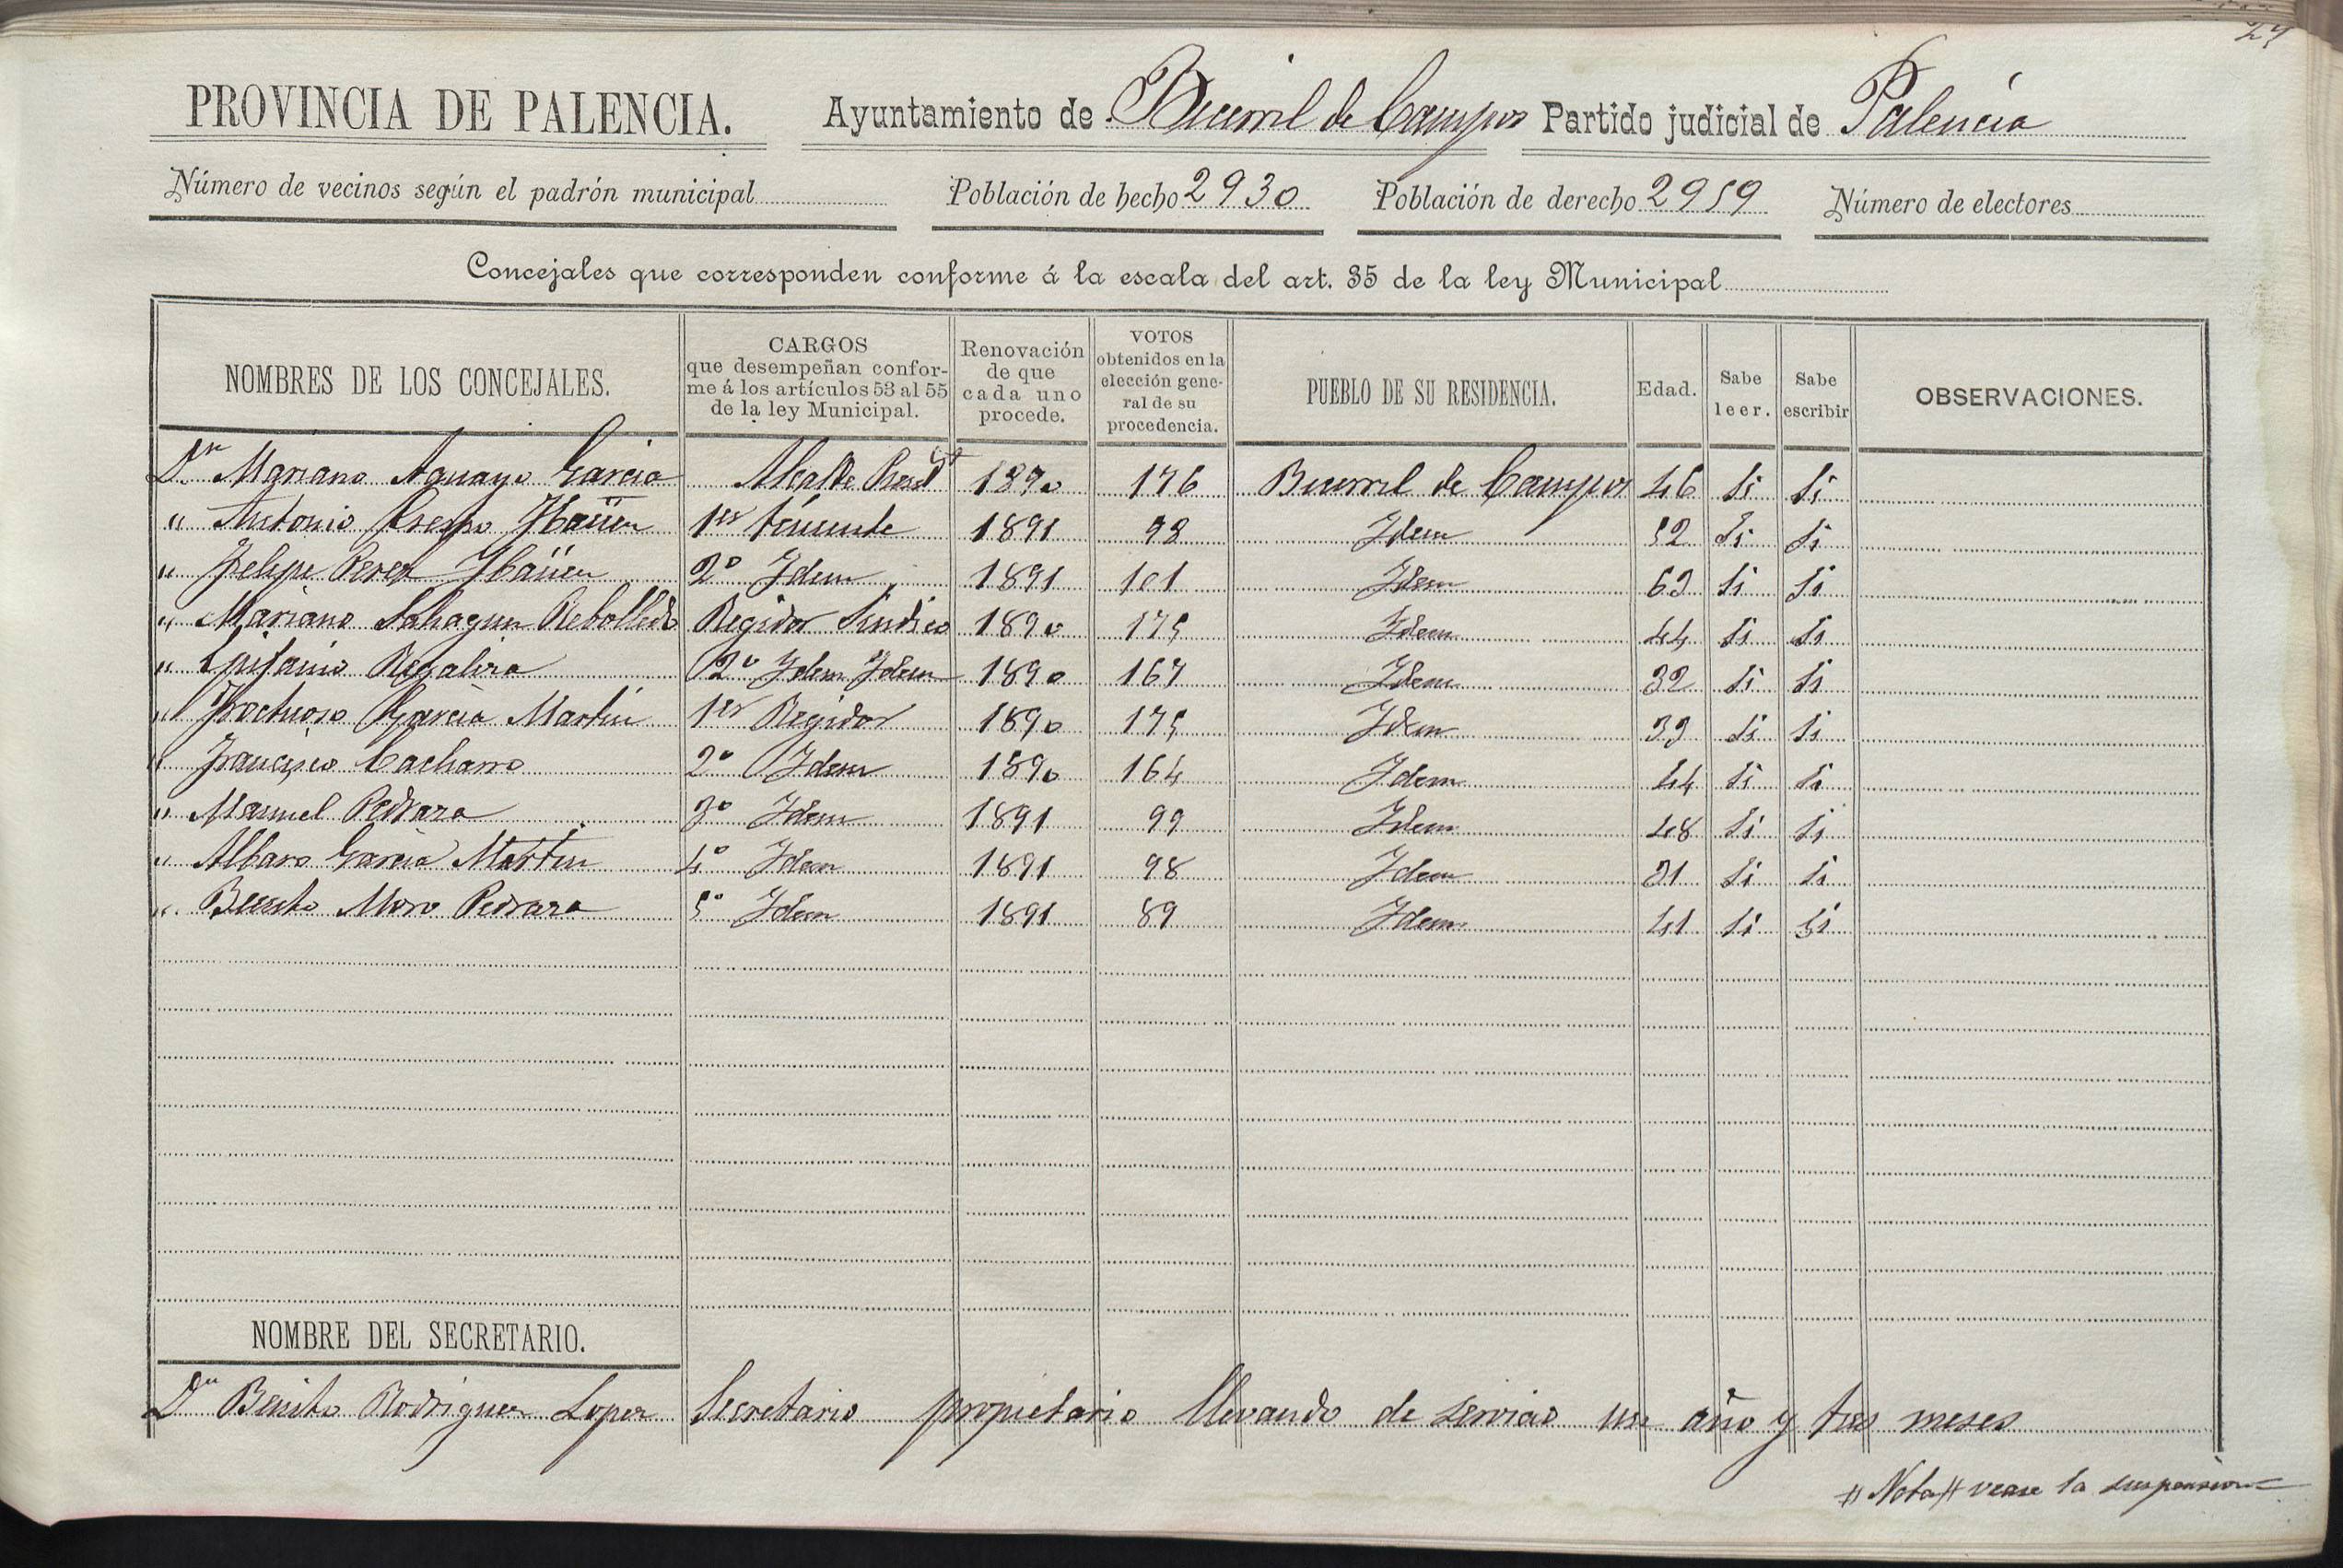 24
PROVINCIA DE PALENCIA. Ayuntamiento de Becerril de Campos Partido judicial de Palencia
Número de vecinos según el padrón municipal Población de hecho 2930 Población de derecho 2959 Número de electores
Concejales que corresponden conforme á la escala del art. 35 de la ley Municipal
NOMBRES DE LOS CONCEJALES. CARGOS que desempeñan conforme á los artículos 53 al 55 de la ley Municipal. Renovación de que cada uno procede. VOTOS obtenidos en la elección general de su procedencia. PUEBLO DE SU RESIDENCIA. Edad. Sabe leer. Sabe escribir OBSERVACIONES.
Dn Mariano Aguayo Garcia Alcalde Presidte 1890 176 Becerril de Campos 46 Si Si
" Antonio Crespo Ybañez 1er teniente 1891 98 Idem 52 Si Si
" Felipe Perez Ybañez 2º Idem 1891 101 Idem 63 Si Si
" Mariano Sahagun Rebolledo Regidor Sindico 1890 175 Idem 44 Si Si
" Epifanio Regaliza 2º Idem Idem 1890 167 Idem 32 Si Si
" Fructuoso Garcia Martin 1er Regidor 1890 175 Idem 33 Si Si
" Francisco Cacharro 2º Idem 1890 164 Idem 44 Si Si
" Manuel Pedraza 3º Idem 1891 99 Idem 48 Si Si
" Albaro Garcia Martin 4º Idem 1891 98 Idem 31 Si Si
" Benito Moro Pedraza 5º Idem 1891 89 Idem 41 Si Si
NOMBRE DEL SECRETARIO.
Dn Benito Rodriguez Lopez Secretario propietario llevando de servicio un año y tres meses
# Nota # vease la suspension